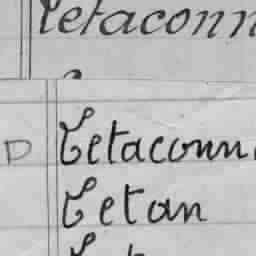 Tetaconn
D Tetaconn
Tetan